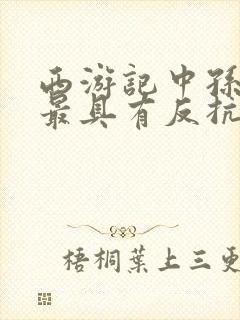 西游記中孫
最具有反抗
梧桐葉上三更